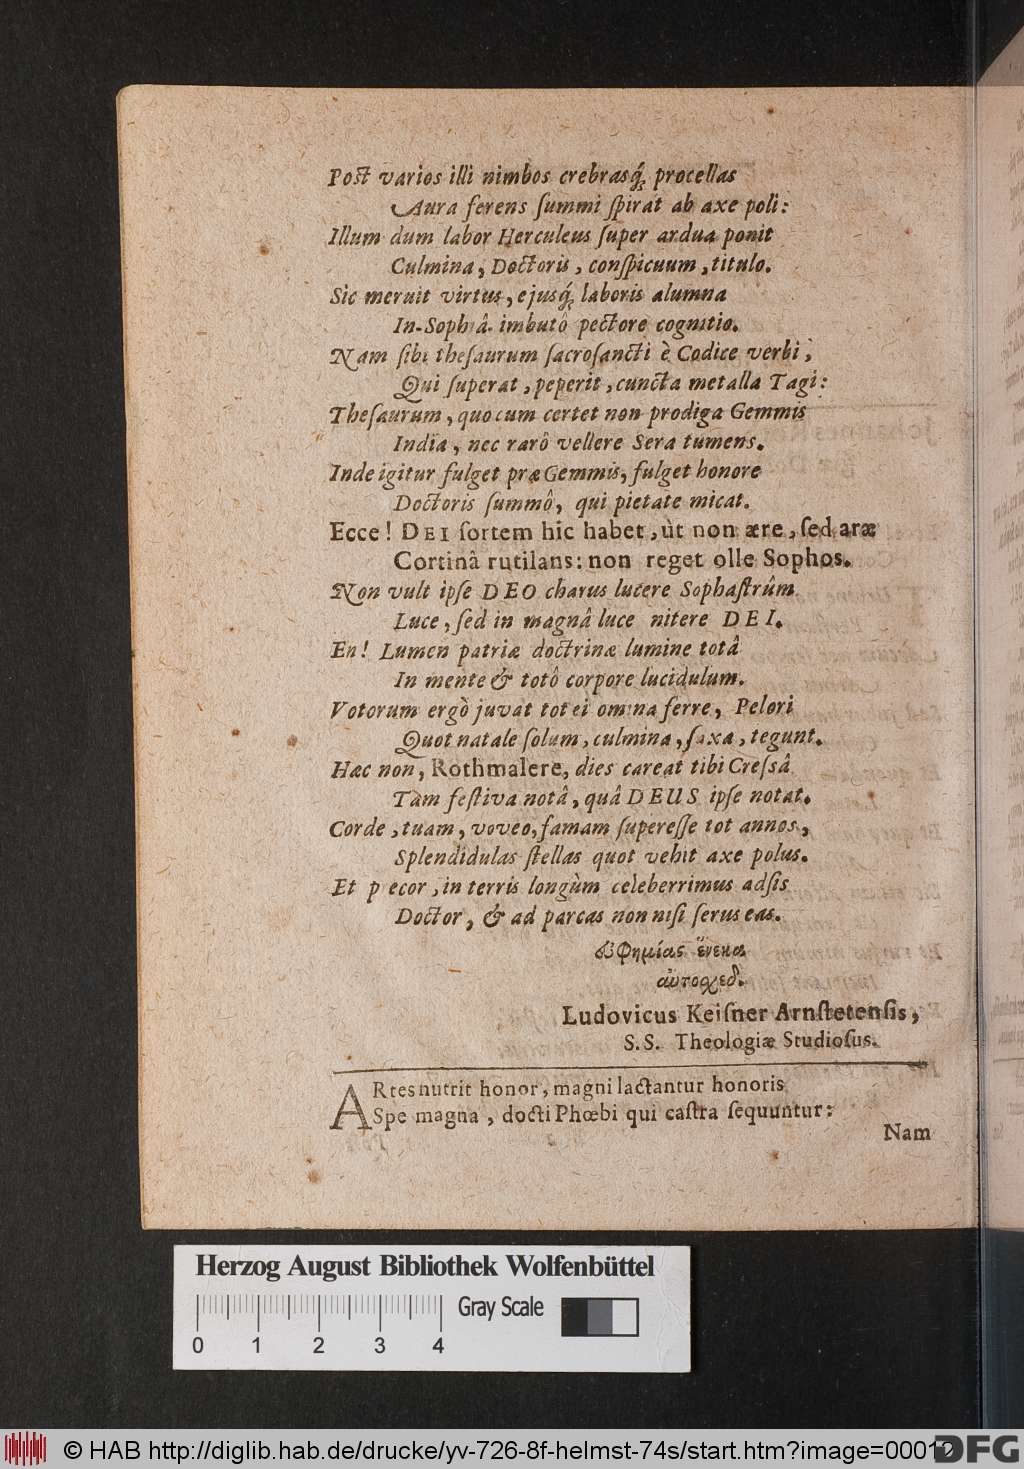 Post varios illi nimbos crebrasq́; procellas
Aura ferens ſummi ſpirat ab axe poli:
Illum dum labor Herculeus ſuper ardua ponit
Culmina, Doctoris, conſpicuum, titulo.
Sic meruit virtus, ejusq́; laboris alumna
In Sophiâ imbutô pectore cognitio.
Nam ſibi theſaurum ſacroſancti è Codice verbi,
Qui ſuperat, peperit, cuncta metalla Tagi:
Theſaurum, quocum certet non prodiga Gemmis
India, nec rarô vellere Sera tumens.
Inde igitur fulget præ Gemmis, fulget honore
Doctoris ſummô, qui pietate micat.
Ecce! DEI ſortem hic habet, ùt non ære, ſed aræ
Cortinâ rutilans: non reget olle Sophos.
Non vult ipſe DEO charus lucere Sophaſtrûm
Luce, ſed in magnâ luce nitere DEI.
En! Lumen patriæ doctrinæ lumine totâ
In mente & totô corpore lucidulum.
Votorum ergò juvat tot ei omina ferre, Pelori
Quot natale ſolum, culmina, ſaxa, tegunt.
Hæc non, Rothmalere, dies careat tibi Creſsâ
Tàm feſtiva notâ, quâ DEUS ipſe notat.
Corde, tuam, voveo, famam ſupereſſe tot annos,
Splendidulas ſtellas quot vehit axe polus.
Et p ecor, in terris longùm celeberrimus adſis
Doctor, & ad parcas non niſi ſerus eas.
εὐφημίας ἕνεκα
αὐτοσχεδ.
Ludovicus Keiſner Arnſtetenſis,
S.S. Theologiæ Studioſus.
ARtes nutrit honor, magni lactantur honoris
Spe magna, docti Phœbi qui caſtra ſequuntur:
Nam
Herzog August Bibliothek Wolfenbüttel
Gray Scale
0 1 2 3 4
© HAB http://diglib.hab.de/drucke/yv-726-8f-helmst-74s/start.htm?image=00012
DFG